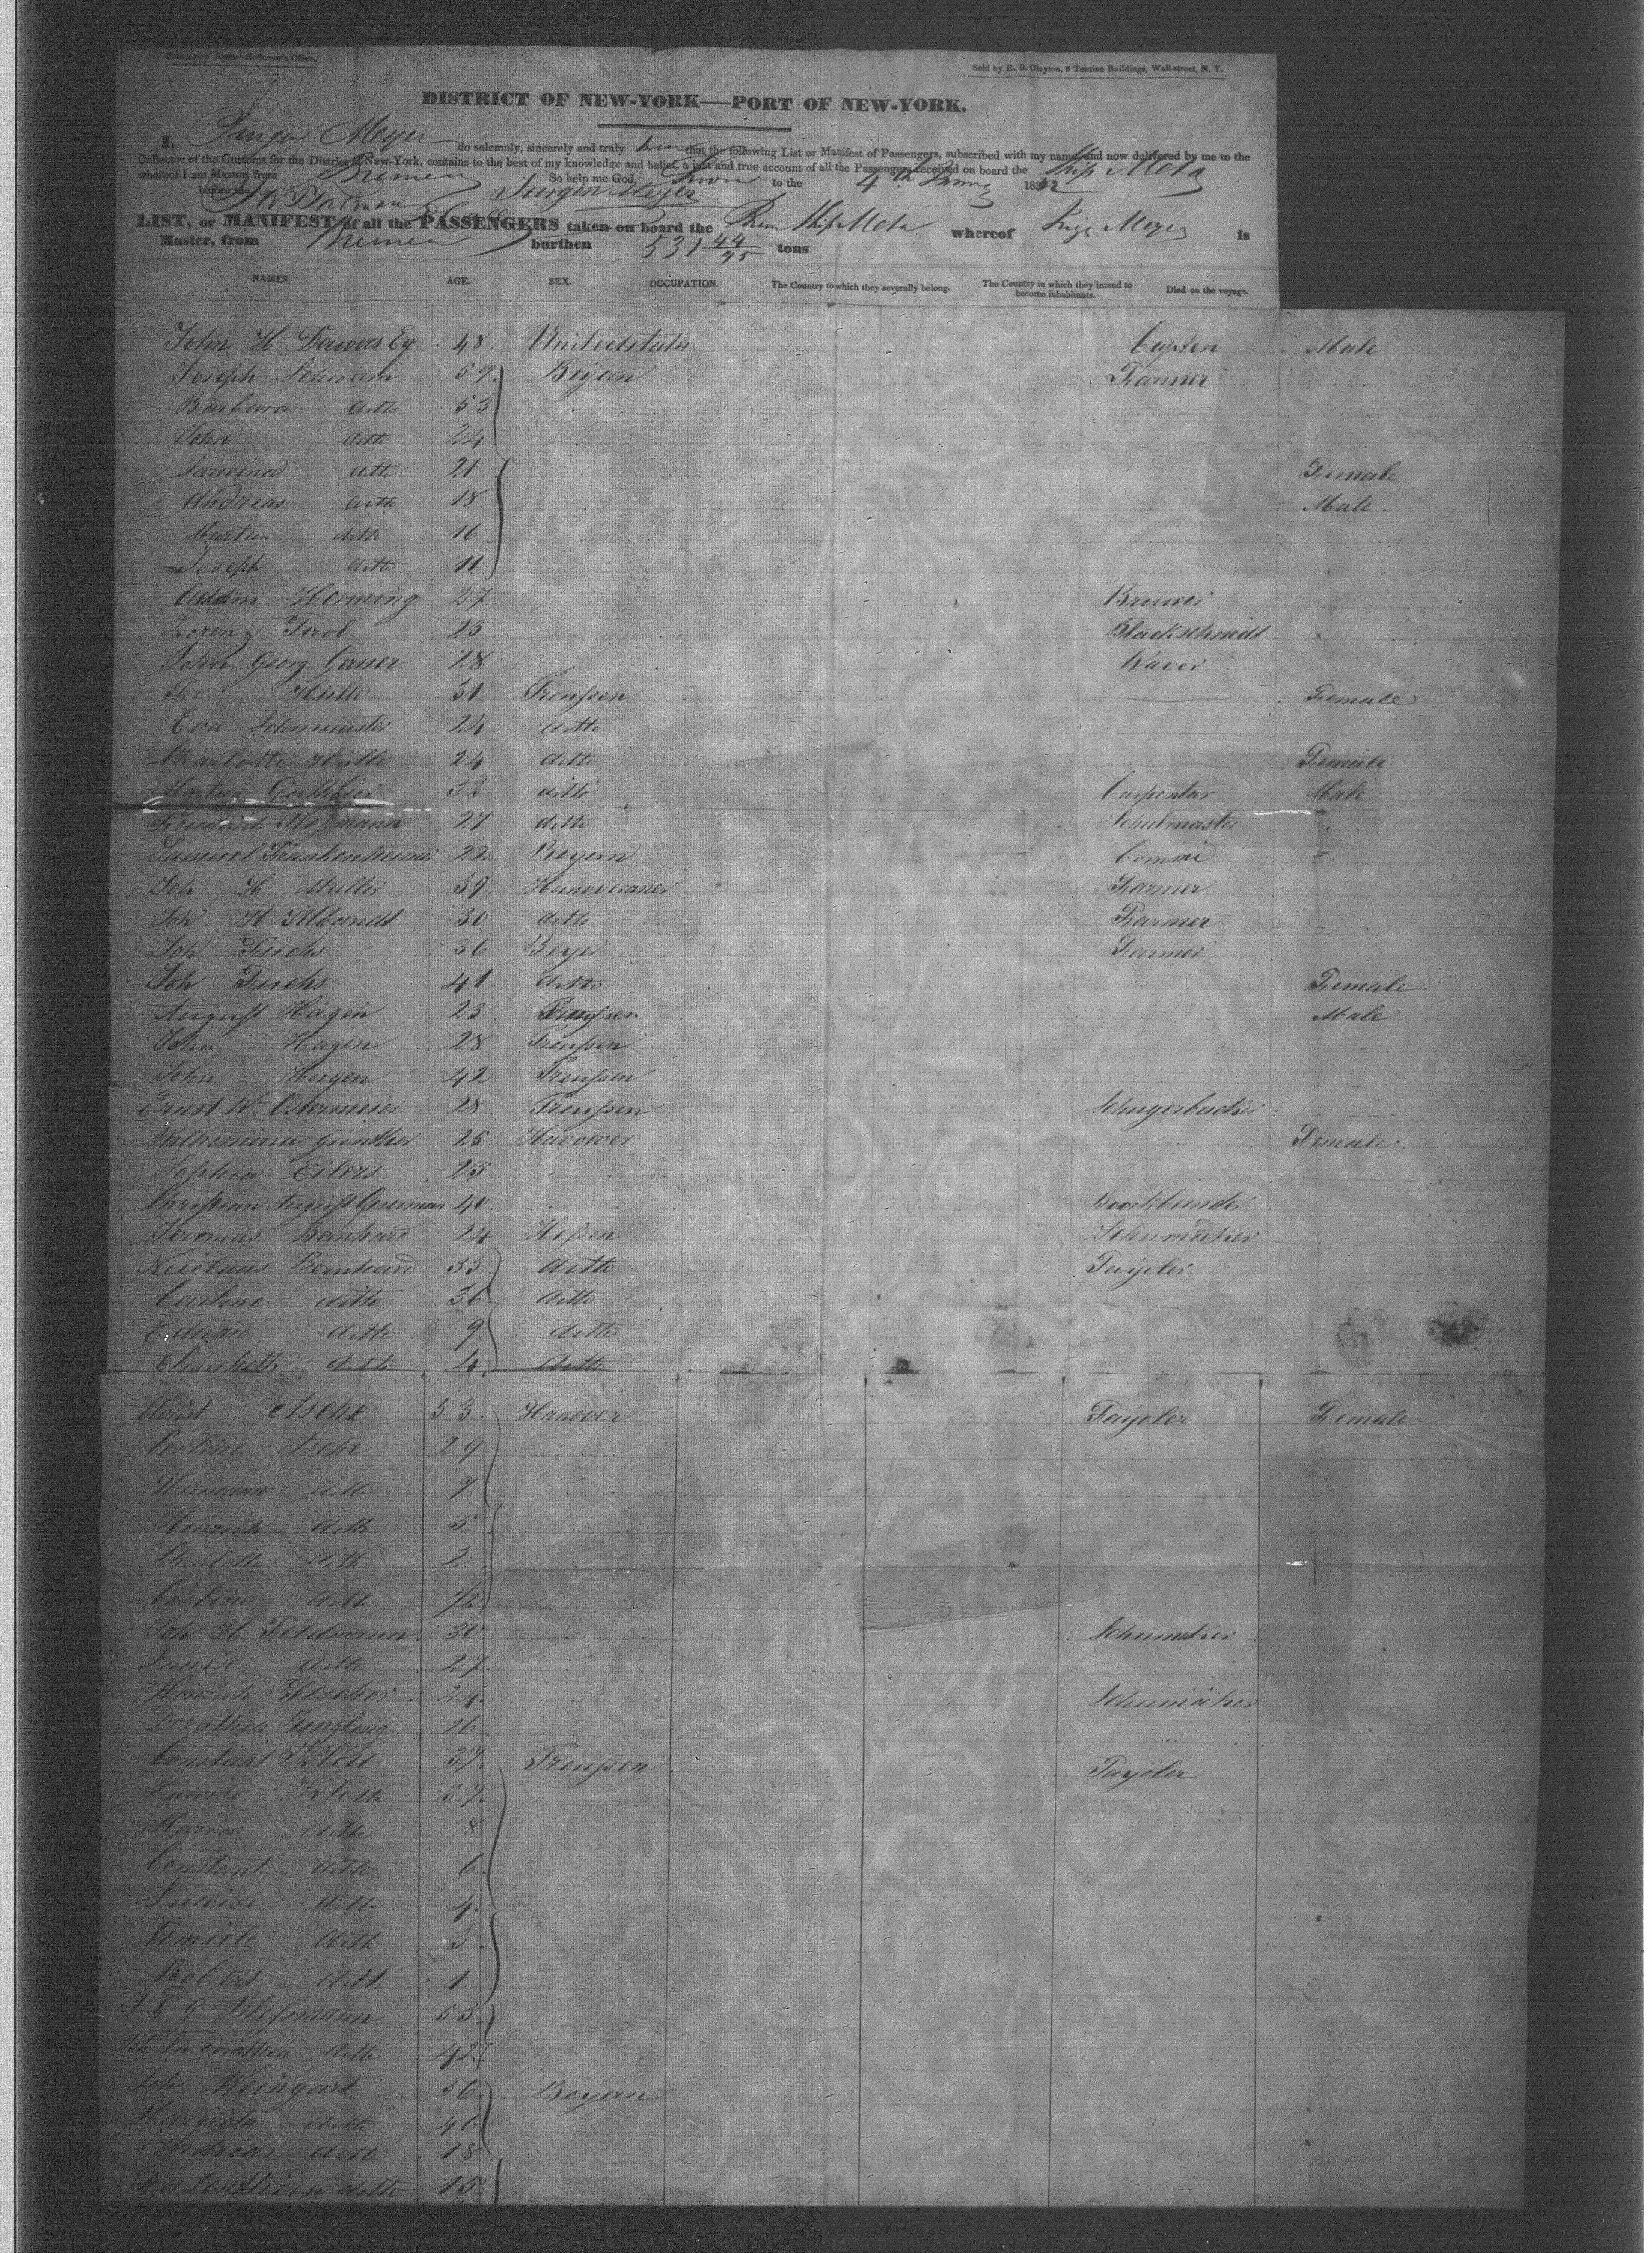 Passengers' Lists.—Collector's Office.
Sold by E. B. Clayton, 6 Tontine Buildings, Wall-street, N. Y.
DISTRICT OF NEW-YORK—PORT OF NEW-YORK.
I, Jurgen Meyer do solemnly, sincerely and truly swear that the following List or Manifest of Passengers, subscribed with my name, and now delivered by me to the
Collector of the Customs for the District of New-York, contains to the best of my knowledge and belief, a just and true account of all the Passengers received on board the Ship Meta
whereof I am Master, from Bremen So help me God.
Sworn to the 4th 18
before me Jurgen Meyer
LIST, or MANIFEST of all the PASSENGERS taken on board the Brem Ship Meta whereof Meyer is
Master, from Bremen burthen 531 44/95 tons
NAMES. AGE. SEX. OCCUPATION. The Country to which they severally belong. The Country in which they intend to become inhabitants. Died on the voyage.
John H 48 Unitedstates Capten Male
Joseph Schram 59 Beyern Farmer
Barbara ditto 53
John ditto 24
ditto 21 Female
Andreas ditto 18 Male
Martin ditto 16
Joseph ditto 11
Addam Horning 27 Bruwer
Lorenz Tirol 23 Blackschmidt
John Georg Gerner 28 Waver
Fr Hülle 31 Preußen Female
Eva 24 ditto
Charlotte Hülle 24 ditto Female
Martin 33 ditto Carpentar Male
27 ditto Schulmaster
Samuel Frankenheimer 22 Beyern
Joh H Muller 39 Hanoveraner Farmer
Joh. H 30 ditto Farmer
Joh Fuchs 36 Beyer Farmer
Joh Fuchs 41 ditto Female
August Hagen 23 Preußen Male
John Hagen 28 Preußen
John Hagen 42 Preußen
Ernst Wm Ostermeier 28 Preußen Schugerbacker
Wilhemina Günther 25 Hanower Female
Sophia Eilers 25
Christian August 40 Bookbander
Bernhard 24 Heßen Schumaker
Niclaus Bernhard 33 ditto Tayoler
Carline ditto 36 ditto
Eduard ditto 9 ditto
Elisabeth ditto 4 ditto
Asche 53 Hanover Tayoler Female
Corline Asche 29
Hermann ditto 9
Hinrich ditto 5
Charlotte ditto 2
Corline ditto 1/2
Joh H Feldmann 30 Schumaker
Luwise ditto 27
Heinrich Fischer 24 Schumaker
Dorathea 26
Constant Klett 37 Preußen Tayoler
Luwise Klett 37
Maria ditto 8
Constant ditto 6
Luwise ditto 4
Amiele ditto 3
Robert ditto 1
J F G Bleßmann 53
Joh Dorathea ditto 42
Joh Weingart 56 Beyern
Margreta ditto 46
Andreas ditto 18
ditto 15